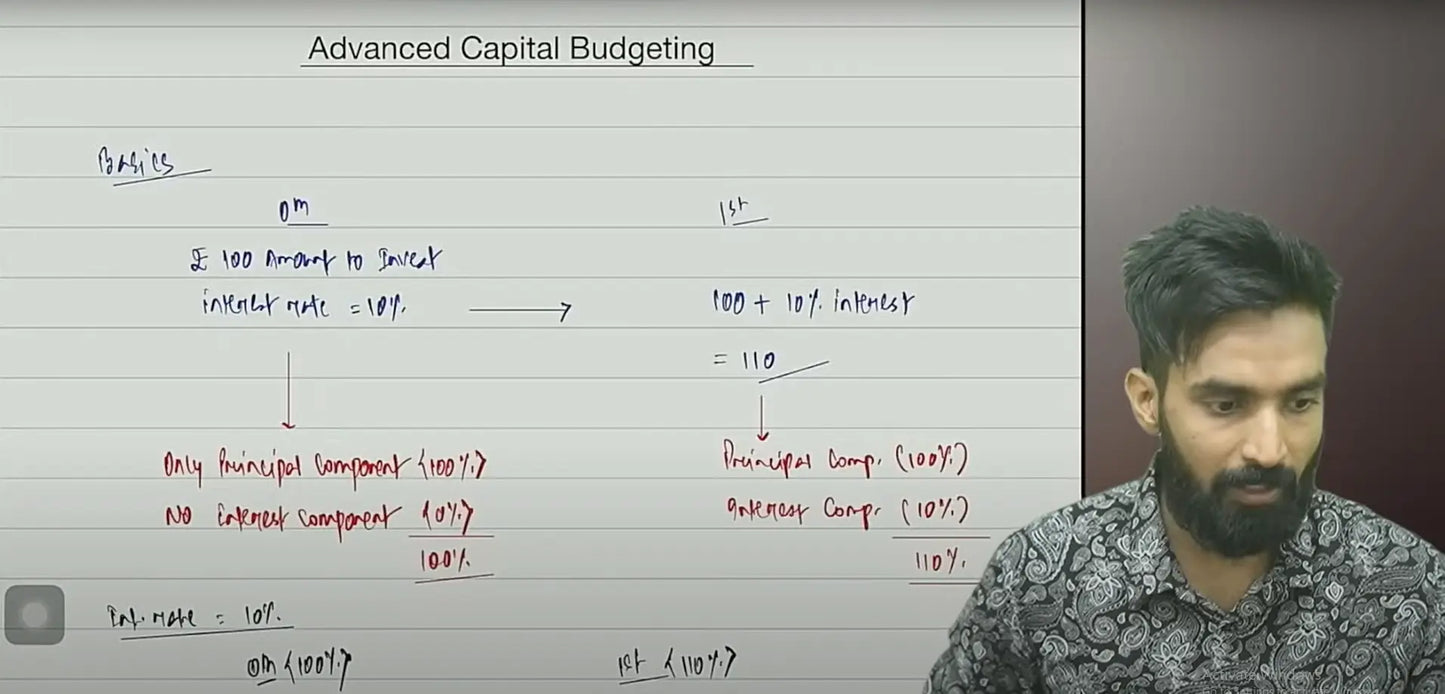 Advanced Capital Budgeting
Basics
0th
1st
₤ 100 Amount to Invest
interest rate = 10%
100 + 10% interest
= 110
Only Principal Component (100%)
No Interest Component (0%)
100%
Principal Comp. (100%)
Interest Comp. (10%)
110%
Int. rate = 10%
0th (100%)
1st (110%)
Activate Windows